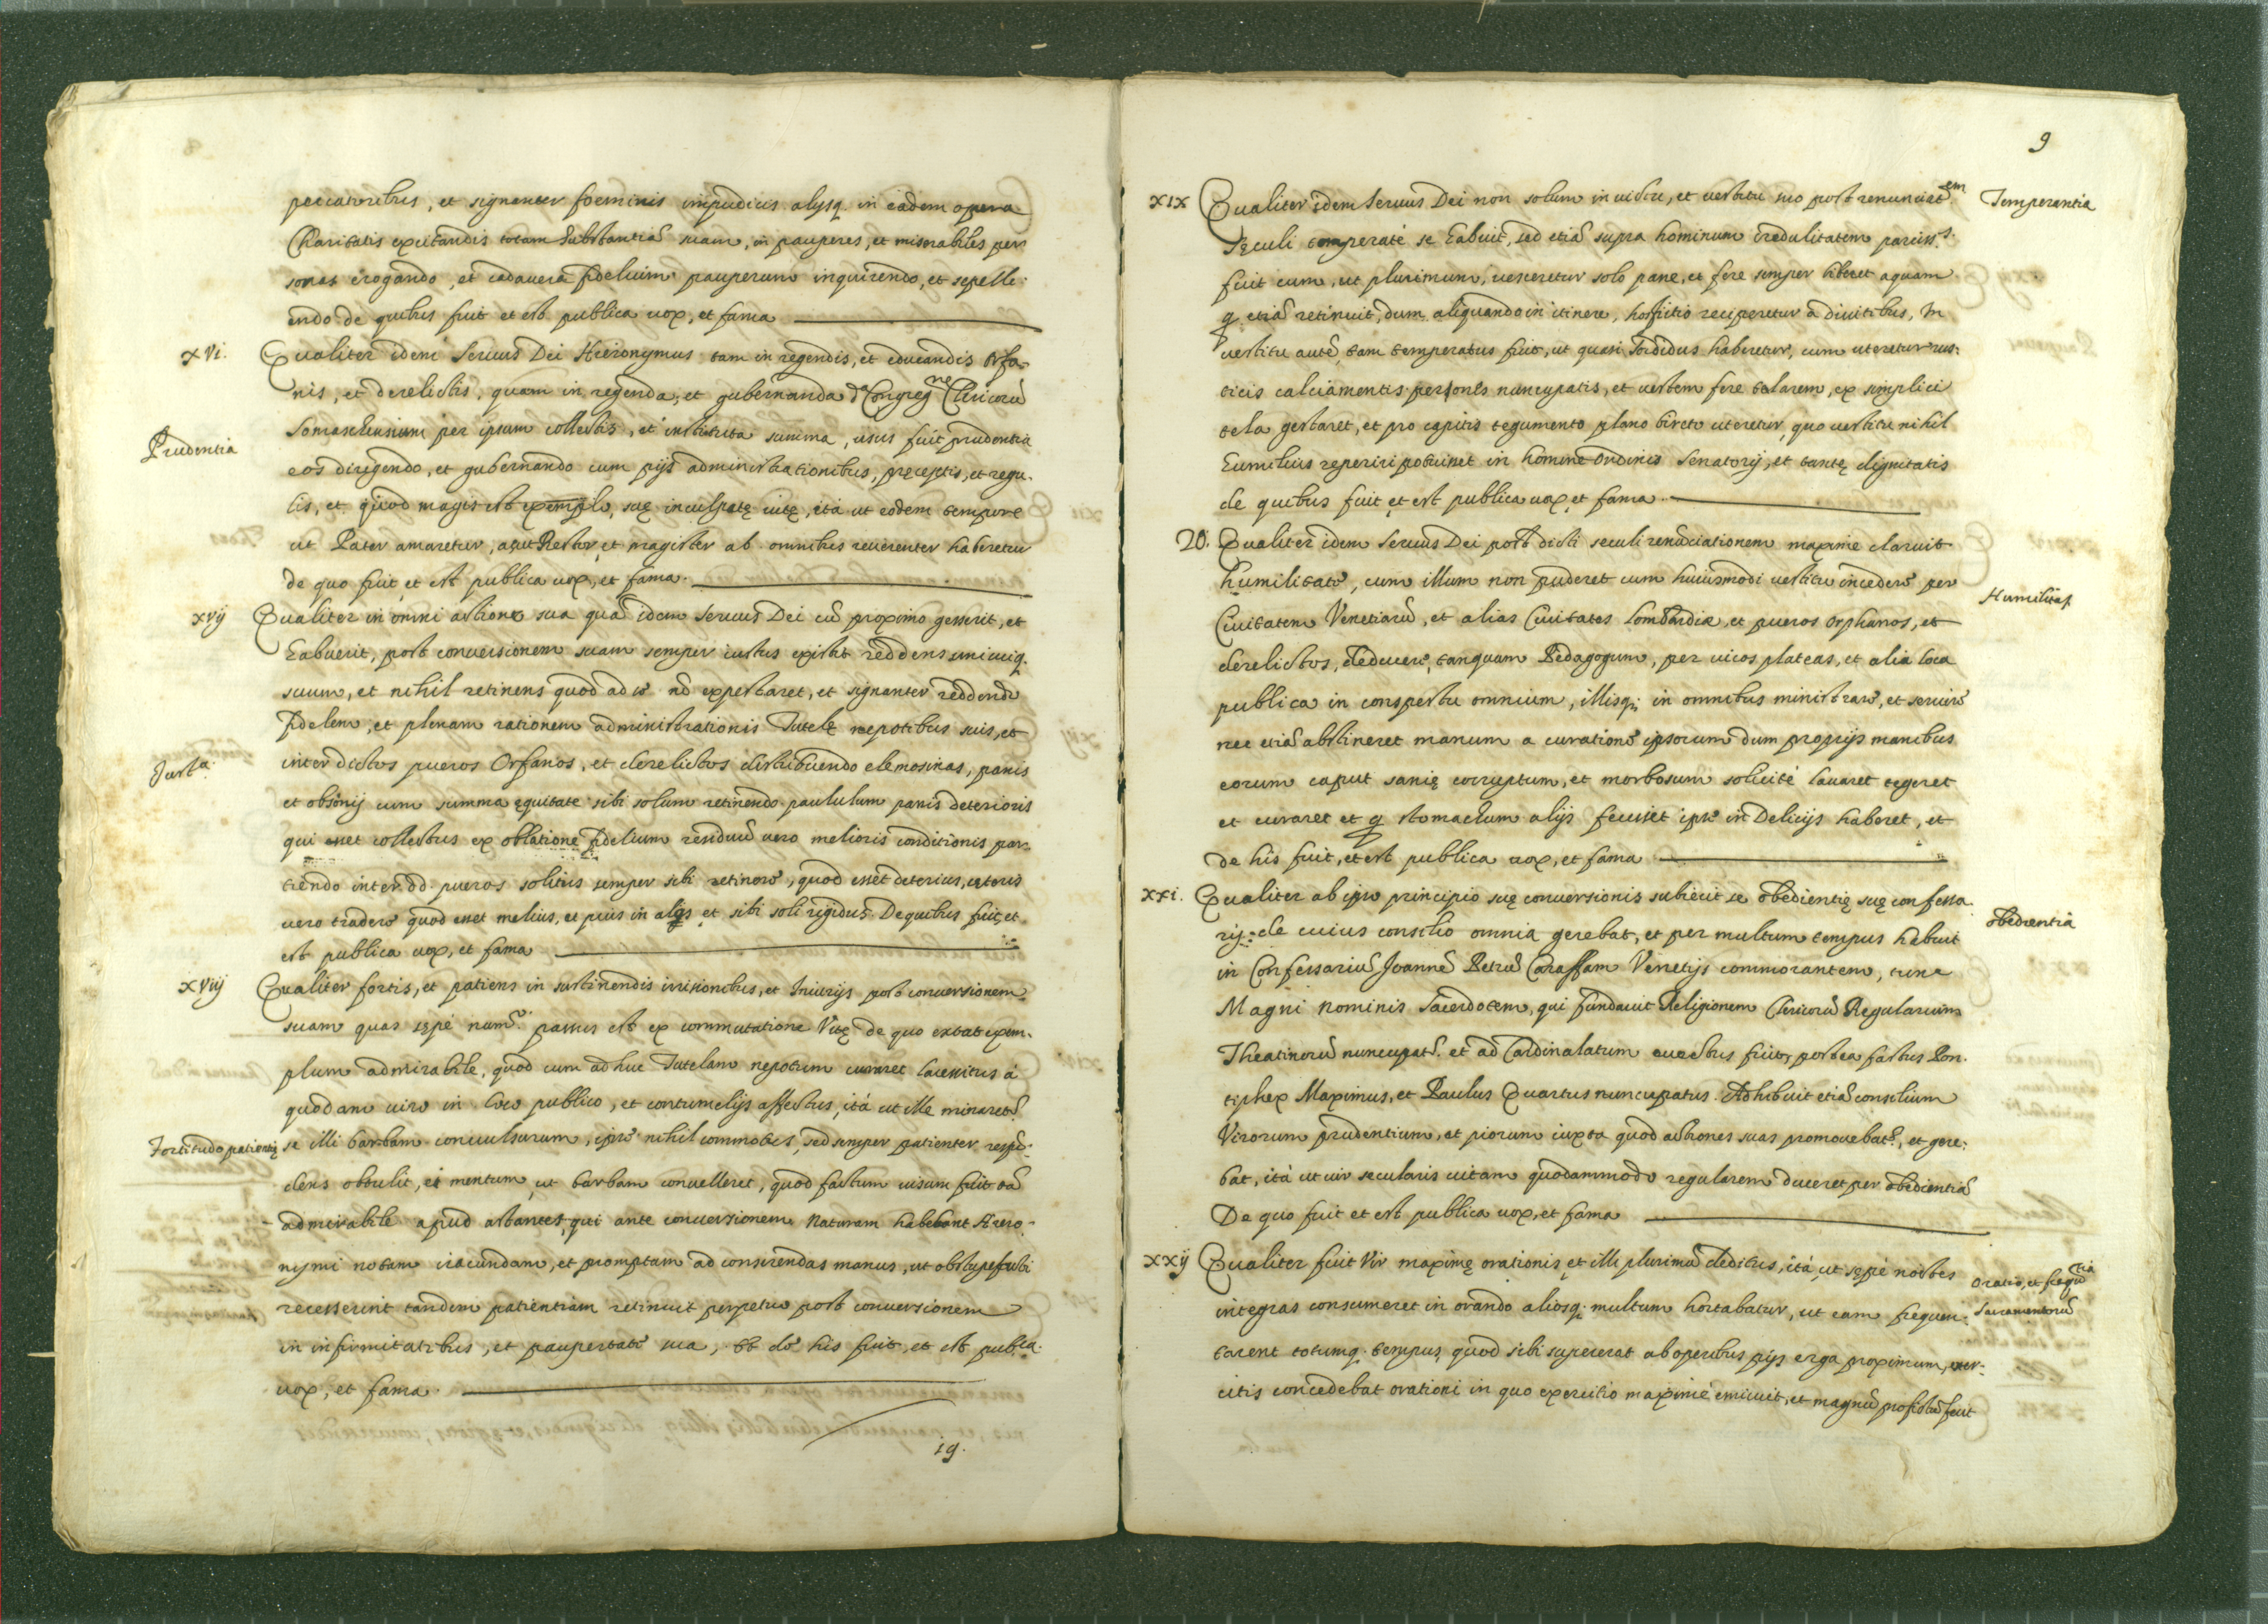 peccatoribus, et signanter foeminis impudicis alysq. in eadem opera
Charitatis exercitandis totam substantiã suam, in pauperes, et miserabiles per
sonas erogando, et cadavera fidelium pauperum inquirendo, et sepelli-
endo de quibus fuit et est publica uox, et fama
xvi. Qualiter idem Seruus Dei Hieronymus tam in regendis, et educandis Orfa-
nis, et derelictis, quam in regenda, et gubernanda dᵃ Congregⁿᵉ Clericorũ
Prudentia
Somaschensium per ipsum collectis, et instituta summa, usus fuit prudentia
eos dirigendo, et gubernando cum pijs administrationibus, pręceptis, et regu-
lis, et quod magis est exemplo, suę inculpatę uitę, ità ut eodem tempore
ut Pater amaretur, ac ut Rector, et magister ab omnibus reuerenter haberetur
de quo fuit et est publica uox, et fama.
xvij Qualiter in omni actione sua quã idem Seruus Dei cũ proximo gesserit, et
habuerit, post conuersionem suam semper iustus extitit reddens unicuiq.
suum, et nihil retinens quod ad se nõ expectaret, et signanter reddendo
fidelem, et plenam rationem administrationis Tutelę nepotibus suis, et
Justᵃ
inter dictos pueros Orfanos, et derelictos distribuendo elemosinas, panis
et obsonij cum summa ęquitate sibi solum retinendo paululum panis deterioris
qui esset collectus ex oblatione fidelium residuũ uero melioris conditionis par-
tiendo inter dd. pueros solitus semper sibi retinere, quod esset deterius, ceteris
uero tradere quod esset melius, et pius in alios et sibi soli rigidus. De quibus fuit, et
est publica uox, et fama
xviij Qualiter fortis, et patiens in sustinendis irrisionibus, et Iniurijs post conuersionem
suam quas sępè numᵒ passus est ex commutatione Vitę de quo extat exem-
plum admirabile, quod cum adhuc Tutelam nepotum curaret lacessitus à
quodam uiro in loco publico, et contumelijs affectus, ità ut ille minaretᵣ
Fortitudo patientię
se illi barbam conuulsurum, ipse nihil commotus, sed semper patienter respõ-
dens obtulit, ei mentum, ut barbam conuelleret, quod factum uisum fuit
admirabile apud astantes, qui ante conuersionem Naturam habebant Hiero-
nymi notam iracundam, et promptam ad conserendas manus, ut obstupefacti
recesserint tandem patientiam retinuit perpetuo post conuersionem
in infirmitatibus, et paupertate sua, et de his fuit, et est pubᶜᵃ
uox, et fama.
19.
9
xix Qualiter idem Seruus Dei non solum in uictu, et uestitu suo post renunciatᵉᵐ
Temperantia
sęculi temperatè se habuit, sed etiã supra hominum credulitatem parciss.ˢ
fuit cum, ut plurimum, uesceretur solo pane, et fere semper biberet aquam
q̃ etiã retinuit, dum aliquando in itinere, hospitio reciperetur à diuitibus, In
uestitu autẽ, tam temperatus fuit, ut quasi sordidus haberetur, cum uteretur rus-
ticis calciamentis peronès nuncupatis, et uestem fere talarem, ex simplici
tela gestaret, et pro capitis tegumento plano bireto uteretur, quo uestitu nihil
humilius reperiri potuisset in homine Ordinis Senatorij, et tantę dignitatis
de quibus fuit et est publica uox, et fama.
20. Qualiter idem Seruus Dei post dicti seculi renũciationem maxime claruit
humilitate, cum illum non puderet cum huiusmodi uestitu incedere per
Humilitas
Ciuitatem Venetiarũ, et alias Ciuitates Lombardiæ, et pueros orphanos, et
derelictos, deducere, tanquam Pedagogum, per uicos plateas, et alia loca
publica in conspectu omnium, illisq; in omnibus ministrare, et seruire
nec etiã abstineret manum a curatione ipsorum dum proprijs manibus
eorum caput sanię corruptum, et morbosum solicitè lauaret tegeret
et curaret et q̃ stomachum alijs fecisset ipse in Delicijs haberet, et
de his fuit, et est publica uox, et fama
xxi. Qualiter ab ipso principio suę conuersionis subiecit se obedientię suę confessa-
obedientia
rij: de cuius consilio omnia gerebat, et per multum tempus habuit
in Confessariũ Joannẽ Petrũ Caraffam Venetijs commorantem, tunc
Magni nominis Sacerdotem, qui fundauit Religionem Clericorũ Regularium
Theatinorũ nuncupatã. et ad Cardinalatum euectus fuit, postea factus Pon-
tiphex Maximus, et Paulus Quartus nuncupatus. Adhibuit etiã consilium
Virorum prudentium, et piorum iuxta quod actiones suas promouebatᵣ, et gere-
bat, ità ut uir secularis uitam quodammodo regularem duceret per obedientiã
De quo fuit et est publica uox, et fama
xxij Qualiter fuit Vir maximę orationis, et illi plurimũ deditus, ità, ut sępè noctes
Oratio, et frequẽᵗⁱᵃ
integras consumeret in orando aliosq; multum hortabatur, ut eam frequen-
Sacramentorũ
tarent totumq. tempus, quod sibi supererat ab operibus pijs erga proximum, exer-
citis concedebat orationi in quo exercitio maximè emicuit, et magnũ profectũ fecit